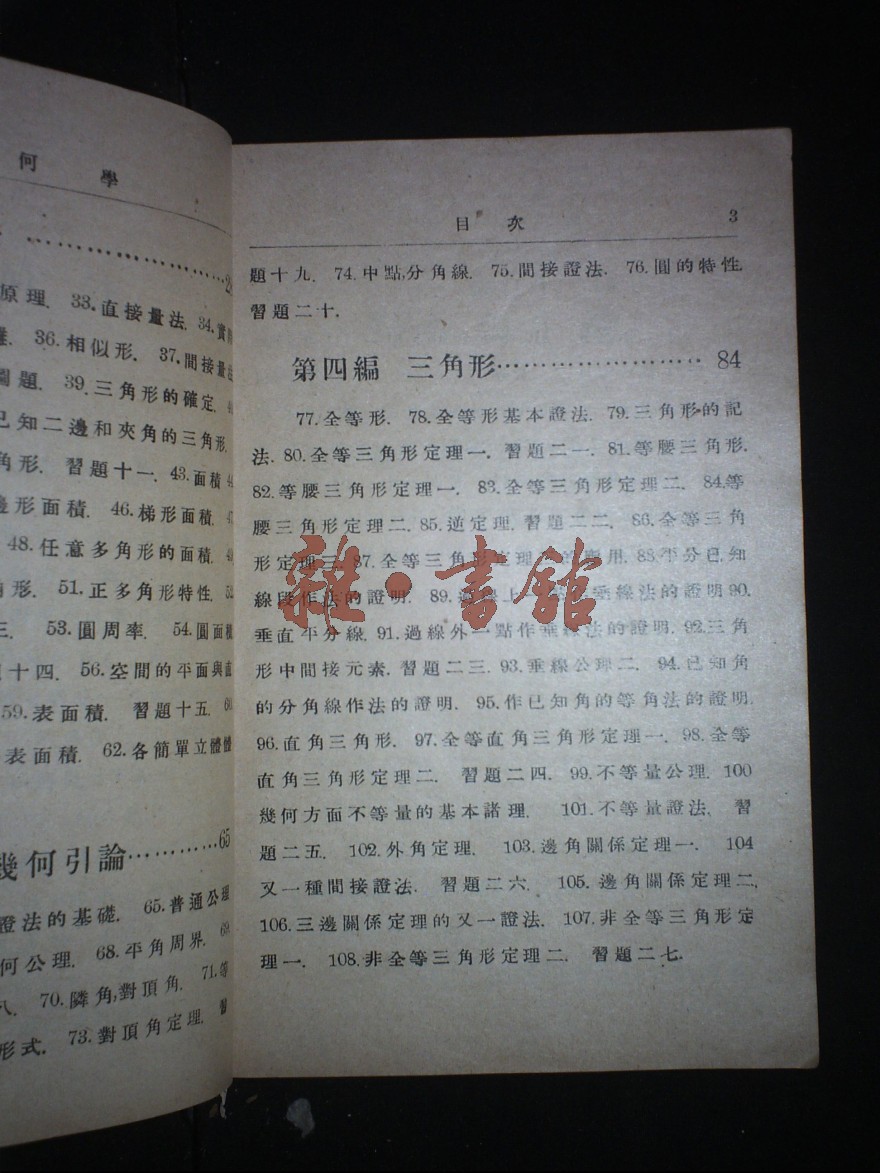 何 學
原理. 33.直接量法. 34.實
36.相似形. 37.間接量法
圖題. 39.三角形的確定.
已知二邊和夾角的三角形.
角形. 習題十一. 43.面積
形面積. 46.梯形面積.
48.任意多角形的面積.
角形. 51.正多角形特性.
三. 53.圓周率. 54.圓面積
十四. 56.空間的平面與直
59.表面積. 習題十五.
表面積. 62.各簡單立體體
幾何引論…………65
證法的基礎. 65.普通公理
何公理. 68.平角周界.
八. 70.隣角,對頂角. 71.等
形式. 73.對頂角定理. 習
目次 3
題十九. 74.中點,分角線. 75.間接證法. 76.圓的特性.
習題二十.
第四編 三角形……………………84
77.全等形. 78.全等形基本證法. 79.三角形的記
法. 80.全等三角形定理一. 習題二一. 81.等腰三角形.
82.等腰三角形定理一. 83.全等三角形定理二. 84.等
腰三角形定理二. 85.逆定理. 習題二二. 86.全等三角
形定理三. 87.全等三角形定理的應用. 88.平分已知
線段作法的證明. 89.過線上一點作垂線法的證明 90.
垂直平分線. 91.過線外一點作垂線法的證明. 92.三角
形中間接元素. 習題二三. 93.垂線公理二. 94.已知角
的分角線作法的證明. 95.作已知角的等角法的證明.
96.直角三角形. 97.全等直角三角形定理一. 98.全等
直角三角形定理二. 習題二四. 99.不等量公理. 100
幾何方面不等量的基本諸理. 101.不等量證法. 習
題二五. 102.外角定理. 103.邊角關係定理一. 104
又一種間接證法. 習題二六. 105.邊角關係定理二.
106.三邊關係定理的又一證法. 107.非全等三角形定
理一. 108.非全等三角形定理二. 習題二七.
雜·書館